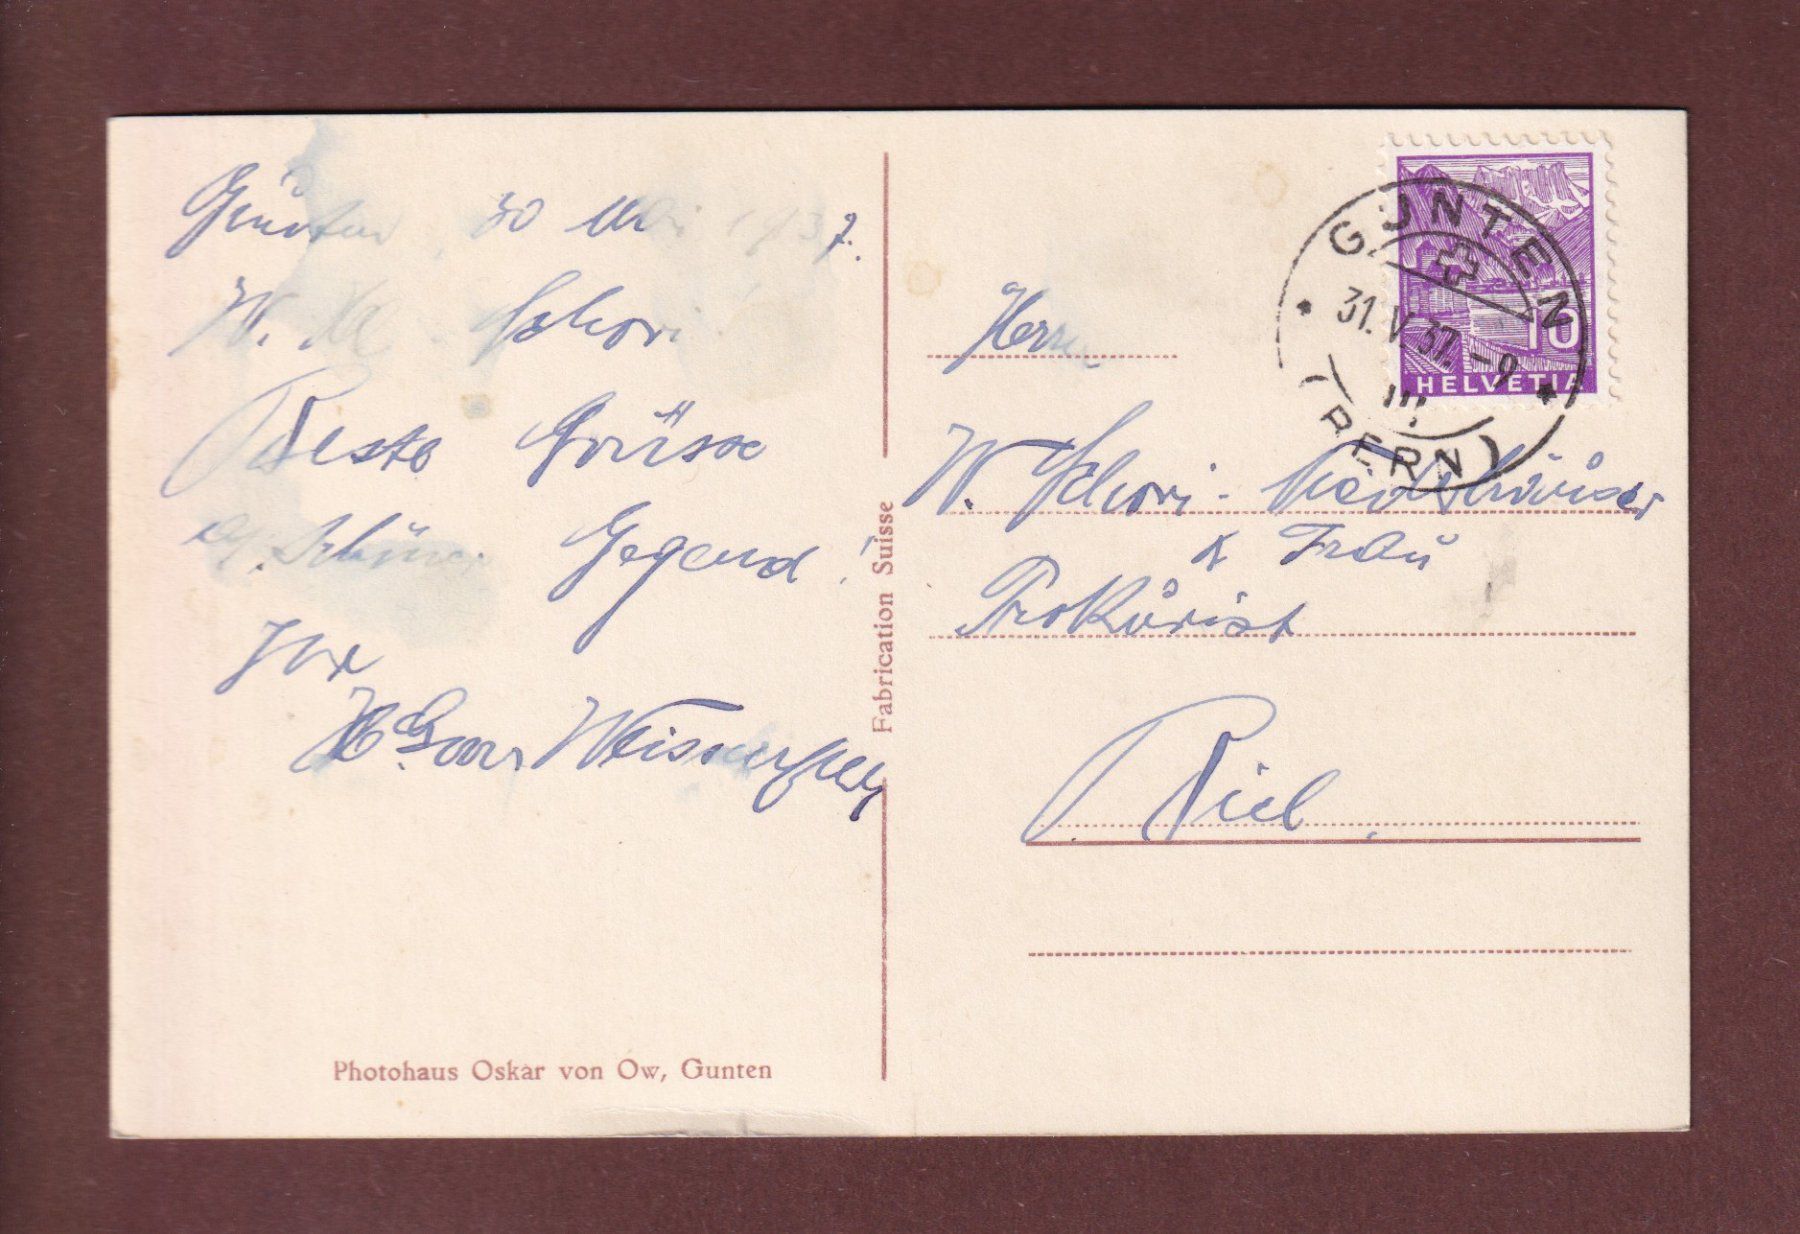 Gunten, 30 Mai 1937.
W. Schori
Beste Grüsse
schöner Gegend!
Ihr
Herrn
W. Schori-
& Frau
Prokurist
Biel.
HELVETIA
10
GUNTEN
31.V.37.-9
(BERN)
Fabrication Suisse
Photohaus Oskar von Ow, Gunten